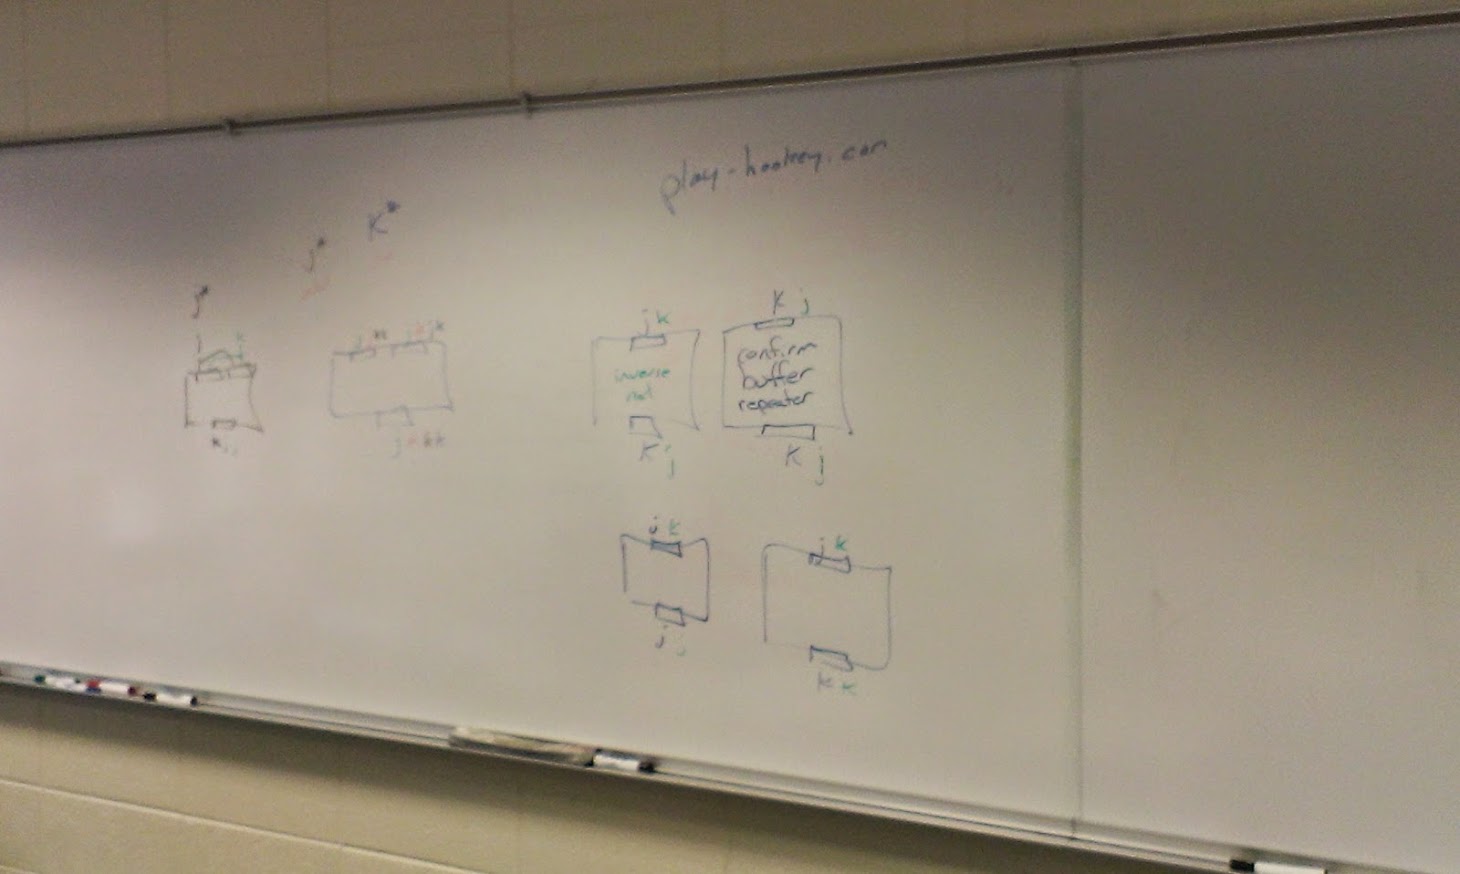 play-hookey.com
K*
j*
j*
j k
K j
inverse
not
confirm
buffer
repeater
K j
K j
j k
j j
j k
k k